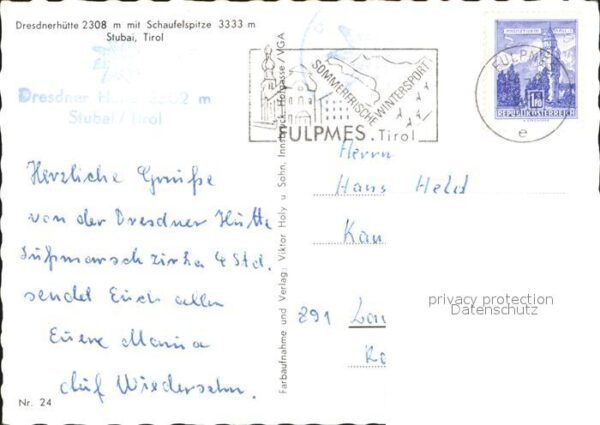 Dresdnerhütte 2308 m mit Schaufelspitze 3333 m
Stubai, Tirol
Dresdner Hütte 2302 m
Stubai / Tirol
SOMMERFRISCHE WINTERSPORT
FULPMES. Tirol
FULPMES
e
REPUBLIK ÖSTERREICH
Herzliche Grüße
von der Dresdner Hütte
Fußmarsch zirka 4 Std.
sendet Euch allen
Euere Mama
Auf Wiedersehn.
Nr. 24
Farbaufnahme und Verlag: Viktor Holy u. Sohn, Innsbruck, Hofgasse / VGA
Herrn
Hans Held
Kau
891 Lan
privacy protection
Datenschutz